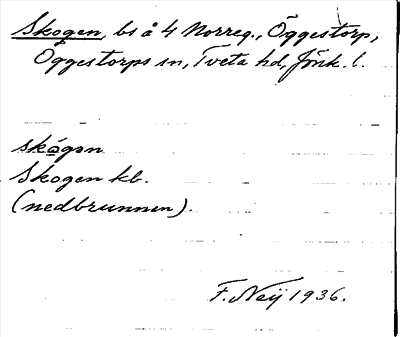 Skogen, bs å 4 Norreg., Öggestorp,
Öggestorps sn, Tveta hd, Jönk. l.
skó̱gən
Skogen kb.
(nedbrunnen).
F. Neij 1936.